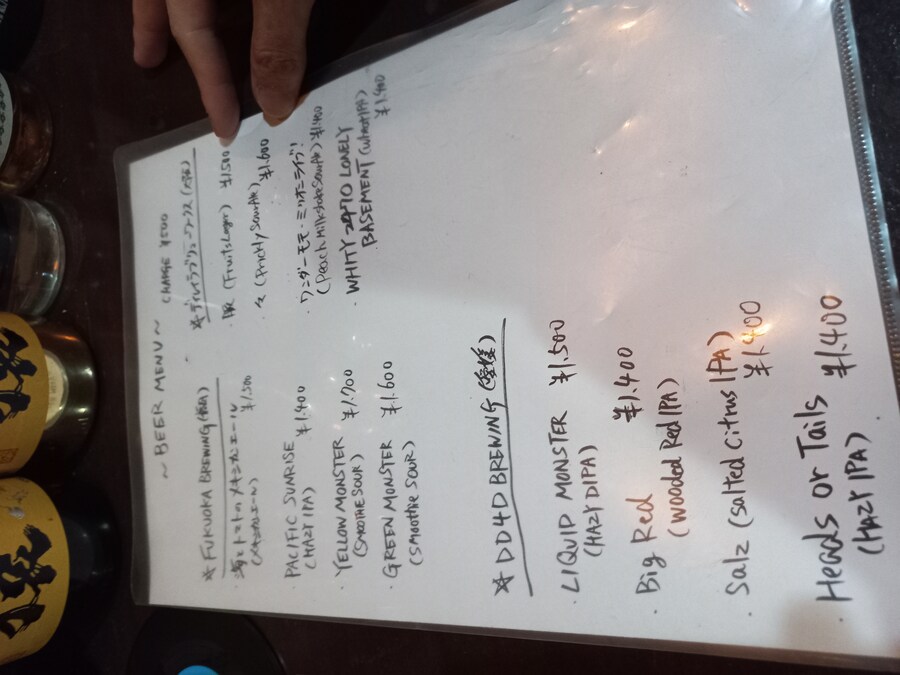 ~ BEER MENU ~ CHARGE ¥500
☆ FUKUOKA BREWING (福岡)
海とトマトのメキシカンエール ¥1.500
(メキシカンエール)
PACIFIC SUNRISE
(HAZY IPA) ¥1.400
・YELLOW MONSTER ¥1.700
(SMOOTHIE SOUR)
・GREEN MONSTER ¥1.600
(SMOOTHIE SOUR)
☆ DD4D BREWING (愛媛)
・LIQUID MONSTER ¥1.500
(HAZY DIPA)
・Big Red ¥1.400
(Wooded Red IPA)
・Salz (Salted Citrus IPA)
¥1.400
・Heads or Tails ¥1.400
(HAZY IPA)
☆ディレイラブリューワークス (大阪)
(Fruits Lager) ¥1.500
(Prickly Sour Ale)
¥1.600
・ワンダーモモ・ミリオンライブ!
(Peach Milkshake Sour Ale) ¥1.400
・WHITY 2470 LONELY
BASEMENT (White IPA)
¥1.400